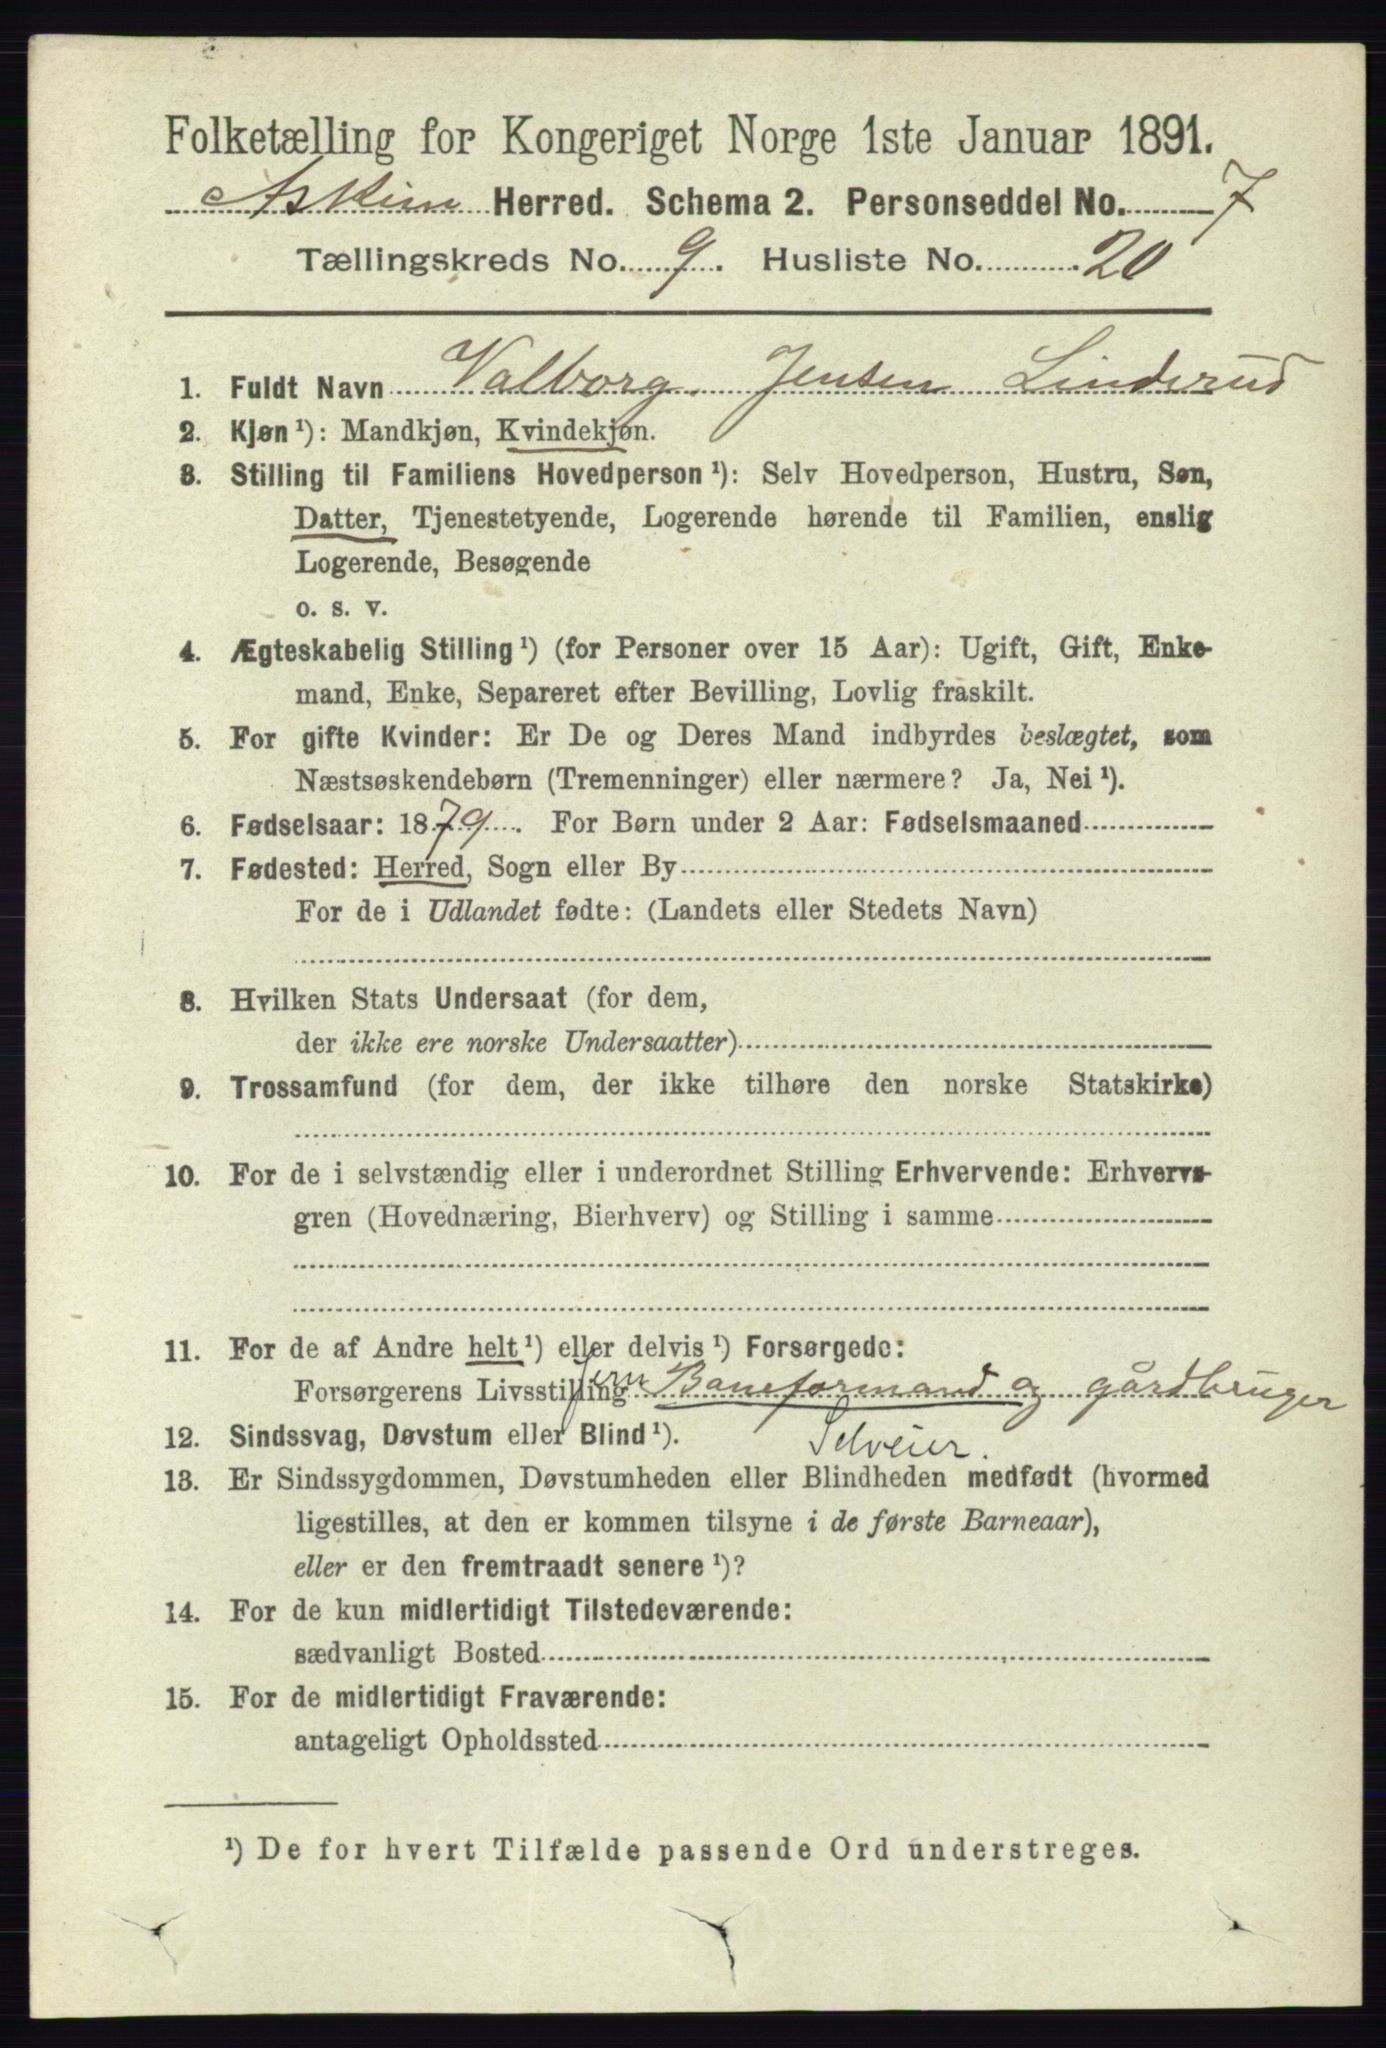 Folketælling for Kongeriget Norge 1ste Januar 1891.
Askim Herred. Schema 2. Personseddel No. 7
Tællingskreds No. 9. Husliste No. 20
1. Fuldt Navn Valborg Jensen Linderud
2. Kjøn¹): Mandkjøn, Kvindekjøn.
3. Stilling til Familiens Hovedperson¹): Selv Hovedperson, Hustru, Søn,
Datter, Tjenestetyende, Logerende hørende til Familien, enslig
Logerende, Besøgende
o. s. v.
4. Ægteskabelig Stilling¹) (for Personer over 15 Aar): Ugift, Gift, Enke-
mand, Enke, Separeret efter Bevilling, Lovlig fraskilt.
5. For gifte Kvinder: Er De og Deres Mand indbyrdes beslægtet, som
Næstsøskendebørn (Tremenninger) eller nærmere? Ja, Nei¹).
6. Fødselsaar: 1879. For Børn under 2 Aar: Fødselsmaaned
7. Fødested: Herred, Sogn eller By
For de i Udlandet fødte: (Landets eller Stedets Navn)
8. Hvilken Stats Undersaat (for dem,
der ikke ere norske Undersaatter)
9. Trossamfund (for dem, der ikke tilhøre den norske Statskirke)
10. For de i selvstændig eller i underordnet Stilling Erhvervende: Erhvervs-
gren (Hovednæring, Bierhverv) og Stilling i samme
11. For de af Andre helt¹) eller delvis¹) Forsørgede:
Forsørgerens Livsstilling Jern Baneformand og gårdbruger
12. Sindssvag, Døvstum eller Blind¹). Selveier.
13. Er Sindssygdommen, Døvstumheden eller Blindheden medfødt (hvormed
ligestilles, at den er kommen tilsyne i de første Barneaar),
eller er den fremtraadt senere¹)?
14. For de kun midlertidigt Tilstedeværende:
sædvanligt Bosted
15. For de midlertidigt Fraværende:
antageligt Opholdssted
¹) De for hvert Tilfælde passende Ord understreges.